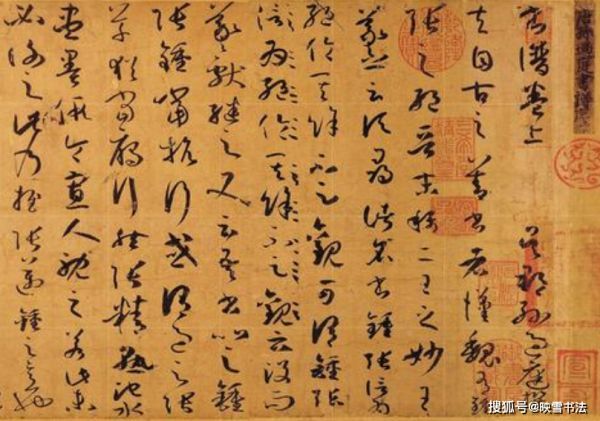 唐孫過庭書譜
書譜卷上 吳郡孫過庭撰
夫自古之善書者漢魏有鍾
張之絕晉末稱二王之妙王
羲之云頃尋諸名書鍾張信為
絕倫其餘不足觀可謂鍾張
信為絕倫其餘不足觀云沒而
羲獻繼之又云吾書比之鍾
張鍾當抗行或謂過之張
草猶當鴈行然張精熟池水
盡墨假令寡人耽之若此未
必謝之此乃推張邁鍾之意也
搜狐号@映雪书法